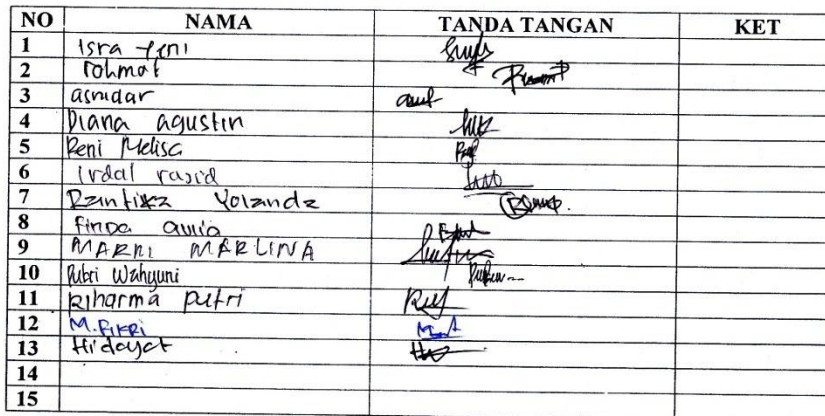 NO NAMA TANDA TANGAN KET
1 Isra Yeni
2 Rohmat
3 asnidar
4 Diana agustin
5 Reni Melisa
6 Irdal rasid
7 Rantika Yolanda
8 Finda aulia
9 MARNI MARLINA
10 Putri Wahyuni
11 Riharma putri
12 M. FIKRI
13 Hidayat
14
15